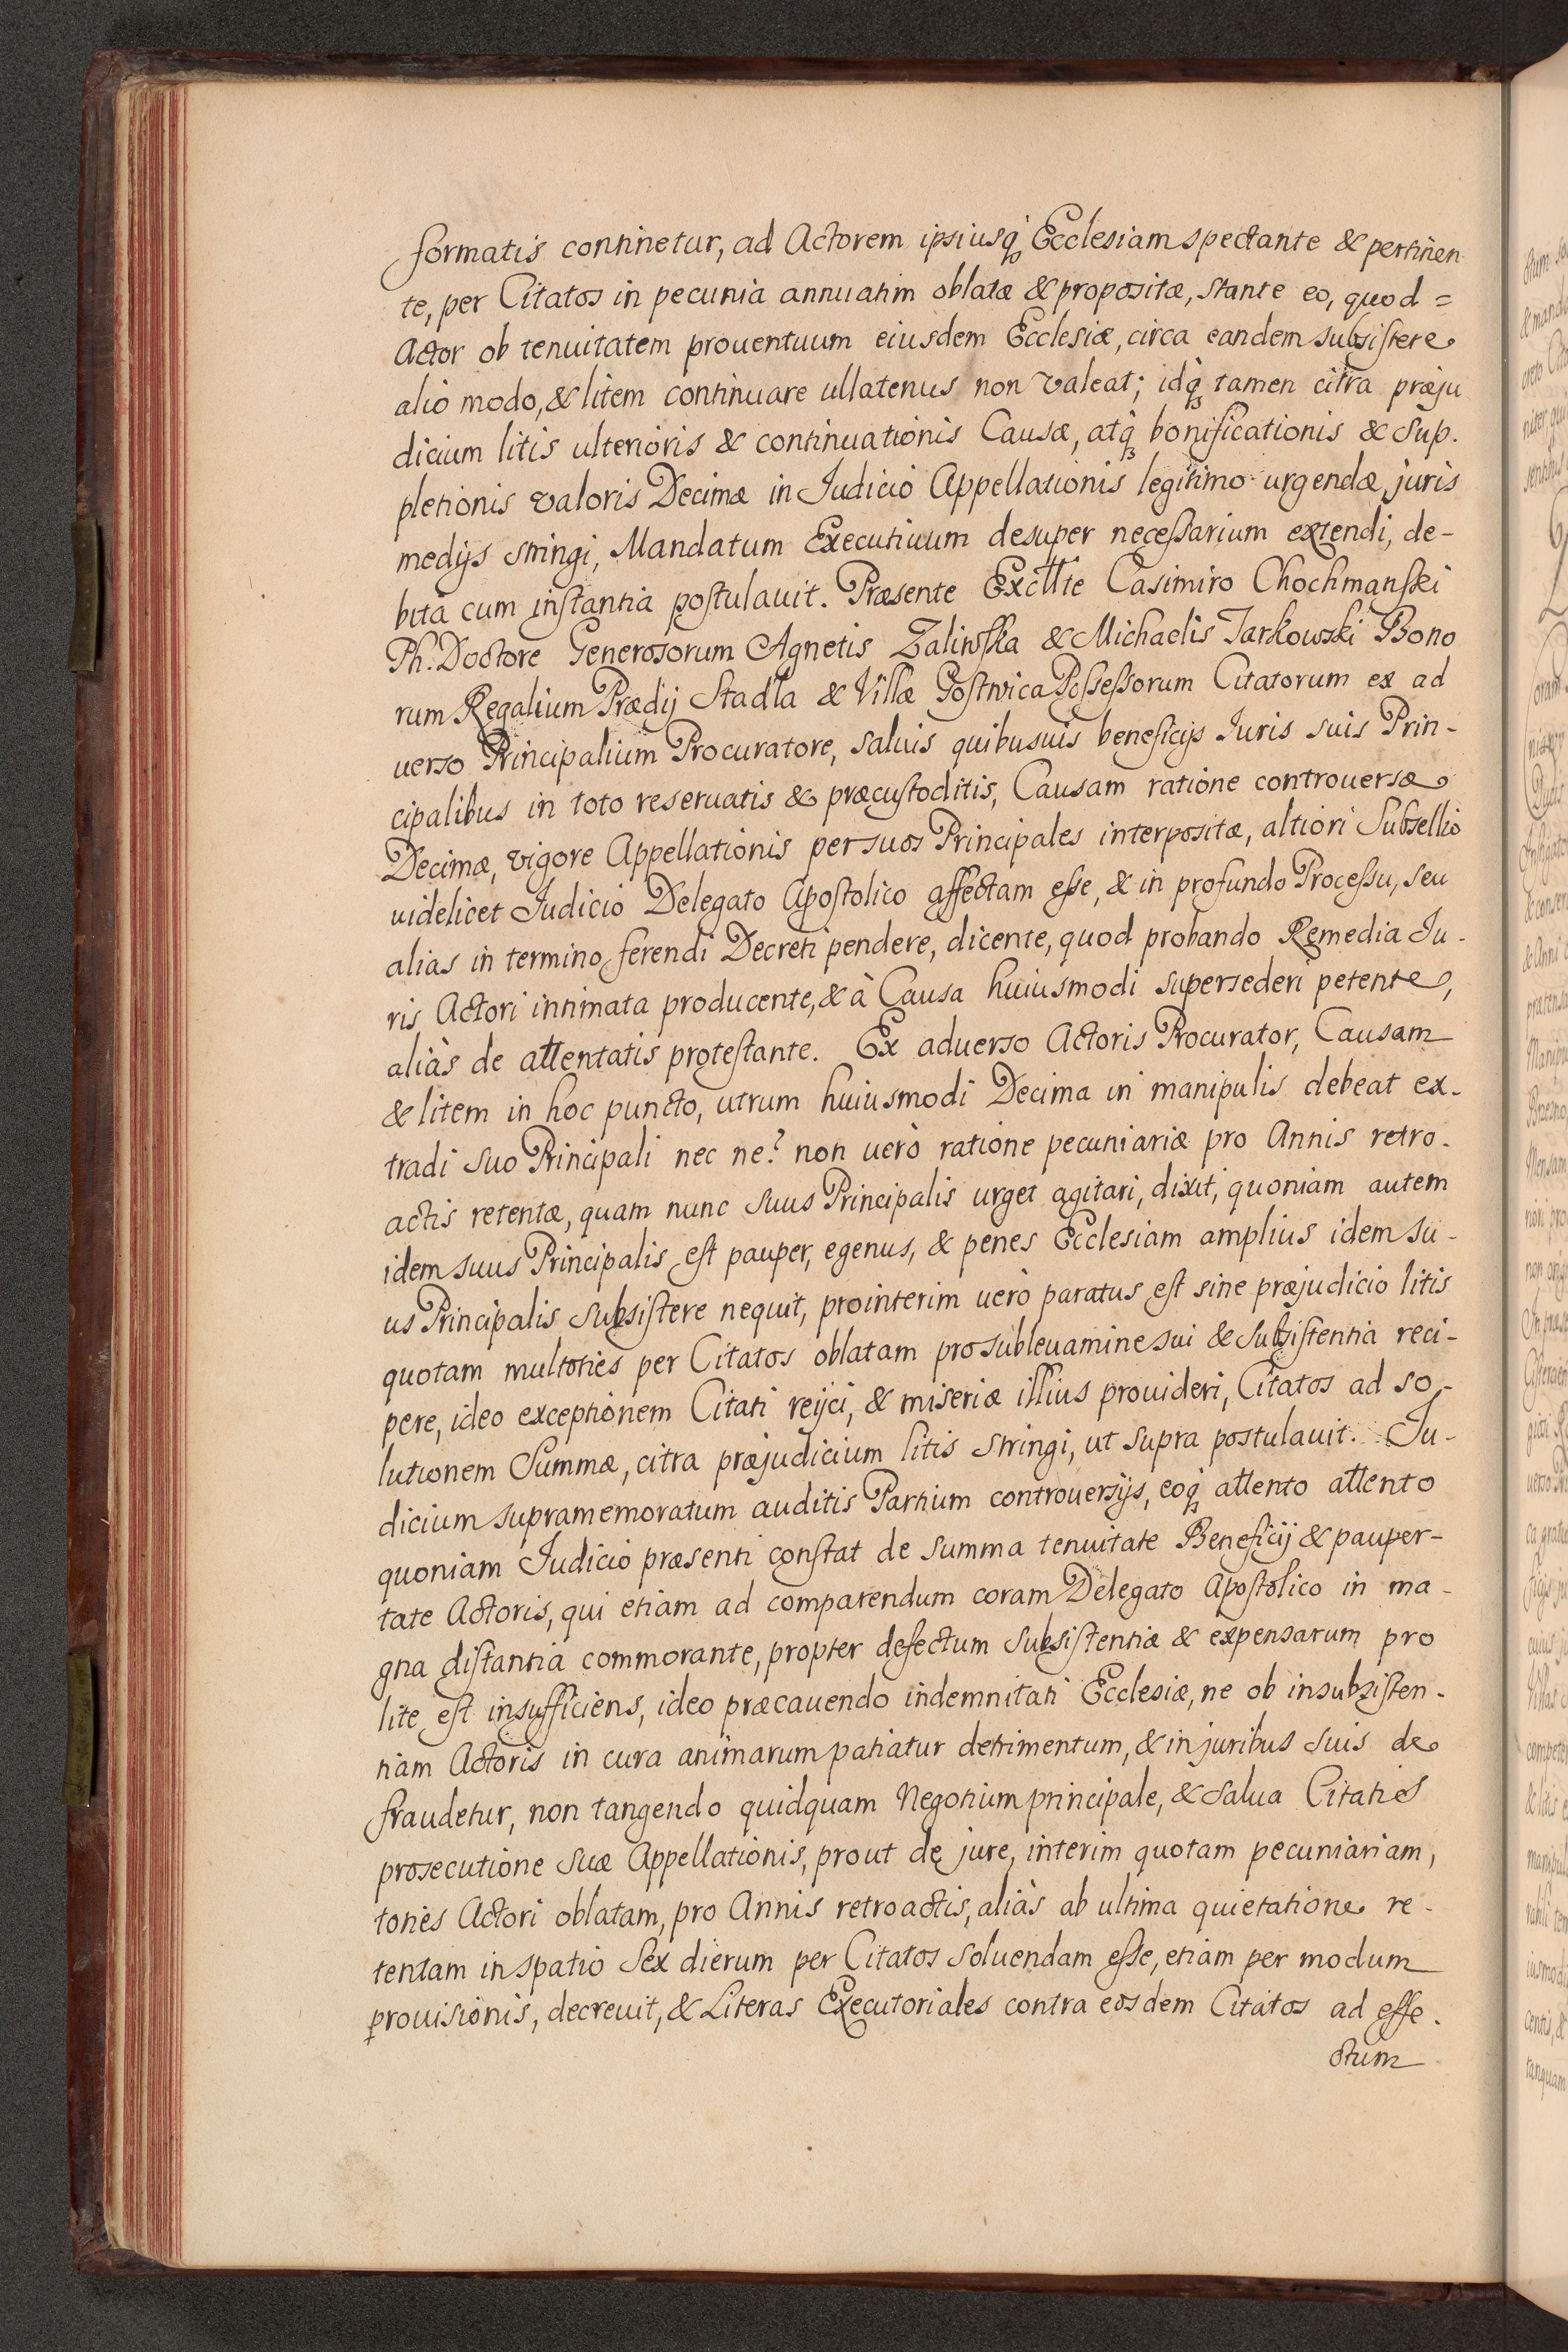 formatis continetur, ad Actorem ipsiusq; Ecclesiam spectante & pertinen
te, per Citatos in pecunia annuatim oblatæ & propositæ, stante eo, quod =
Actor ob tenuitatem prouentuum eiusdem Ecclesiæ, circa eandem subsistere
alio modo, & litem continuare ullatenus non valeat; idq; tamen citra præju
dicium litis ulterioris & continuationis Causæ, atq; bonificationis & sup-
pletionis valoris Decimæ in Iudicio Appellationis legitimo urgendæ, juris
medijs stringi, Mandatum Executiuum desuper necessarium extendi, de-
bita cum instantia postulauit. Præsente Exclltte Casimiro Chochmanski
Ph. Doctore Generosorum Agnetis Zalinska & Michaelis Jarkowski Bono
rum Regalium Prædij Stadła & Villæ Gostwica Possessorum Citatorum ex ad
uerso Principalium Procuratore, saluis quibusuis beneficijs Iuris suis Prin-
cipalibus in toto reseruatis & præcustoditis, Causam ratione controuersæ
Decimæ, vigore Appellationis per suos Principales interpositæ, altiori Subsellio
uidelicet Iudicio Delegato Apostolico affectam esse, & in profundo Processu, seu
alias in termino ferendi Decreti pendere, dicente, quod probando Remedia Iu-
ris Actori intimata producente, & à Causa huiusmodi supersederi petente,
aliàs de attentatis protestante. Ex aduerso Actoris Procurator, Causam
& litem in hoc puncto, utrum huiusmodi Decima in manipulis debeat ex-
tradi suo Principali nec ne? non uerò ratione pecuniariæ pro Annis retro-
actis retentæ, quam nunc suus Principalis urget agitari, dixit, quoniam autem
idem suus Principalis est pauper, egenus, & penes Ecclesiam amplius idem su-
us Principalis subsistere nequit, prointerim uerò paratus est sine præjudicio litis
quotam multoties per Citatos oblatam pro subleuamine sui & subsistentia reci-
pere, ideo exceptionem Citati reijci, & miseriæ illius prouideri, Citatos ad so-
lutionem Summæ, citra præjudicium litis stringi, ut supra postulauit. Iu-
dicium supramemoratum auditis Partium controuersijs, eoq; attento attento
quoniam Iudicio præsenti constat de summa tenuitate Beneficij & pauper-
tate Actoris, qui etiam ad comparendum coram Delegato Apostolico in ma-
gna distantia commorante, propter defectum subsistentiæ & expensarum pro
lite est insufficiens, ideo præcauendo indemnitati Ecclesiæ, ne ob insubsisten-
tiam Actoris in cura animarum patiatur detrimentum, & in juribus suis de
fraudetur, non tangendo quidquam Negotium principale, & salua Citatis
prosecutione suæ Appellationis, prout de jure, interim quotam pecuniariam,
toties Actori oblatam, pro Annis retroactis, aliàs ab ultima quietatione re-
tentam in spatio sex dierum per Citatos soluendam esse, etiam per modum
prouisionis, decreuit, & Literas Executoriales contra eosdem Citatos ad effe-
ctum